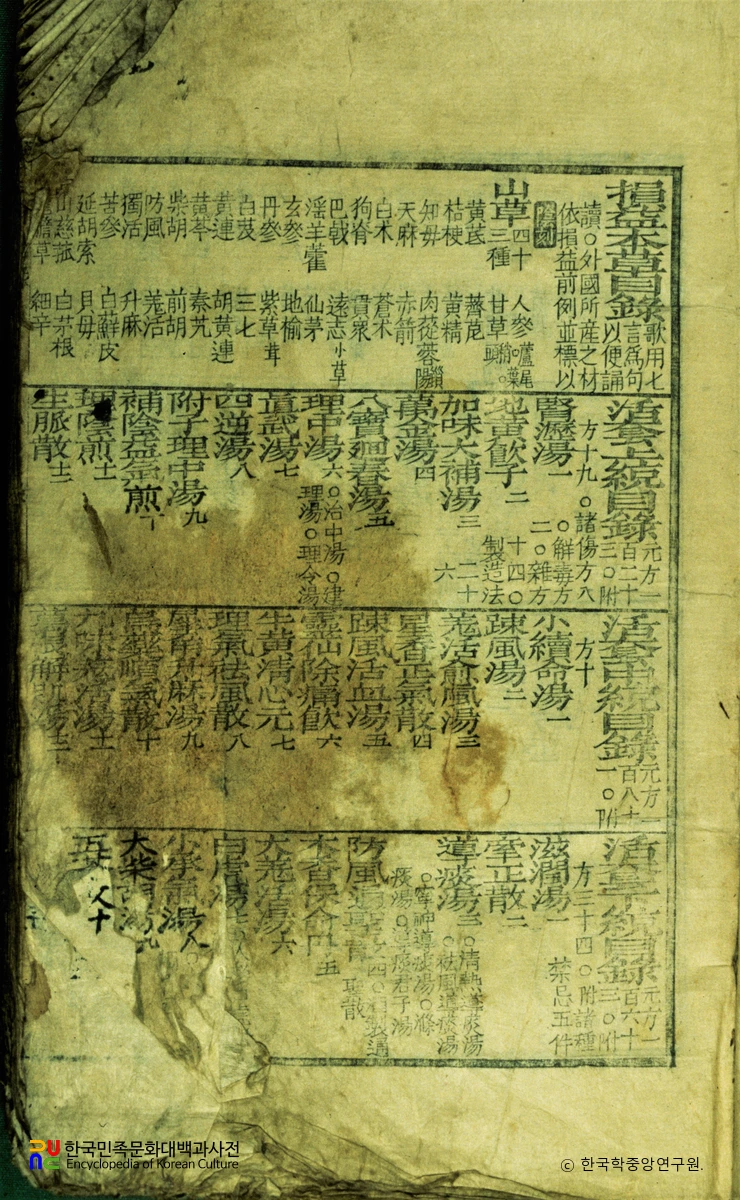 損益本草目錄 歌用七言爲句以便誦
讀○外國所産之材依損益前例並標以
山草 四十三種
人參 蘆尾
黃芪
甘草
桔梗
薺苨
知母
黃精
天麻
肉蓯蓉
白朮
赤箭
狗脊
蒼朮
巴戟
貫衆
淫羊藿
遠志 小草
玄參
仙茅
丹參
地楡
白芨
紫草茸
黃連
三七
黃芩
胡黃連
柴胡
秦艽
防風
前胡
獨活
羌活
苦參
升麻
延胡索
白蘚皮
山慈菰
貝母
龍膽草
白茅根
細辛
活套上統目錄 元方一百二十三○附
方十九○諸傷方八○解毒方二○雜方十四○製造法二十六
腎瀝湯 一
地黃飮子 二
加味大補湯 三
萬金湯 四
八寶廻春湯 五
理中湯 六 ○治中湯○建理湯○理令湯
眞武湯 七
四逆湯 八
附子理中湯 九
補陰益氣煎 十
理陰煎 十一
生脈散 十二
活套中統目錄 元方一百八十一○附
方十
小續命湯 一
疎風湯 二
羌活愈風湯 三
星香正氣散 四
疎風活血湯 五
靈仙除痛飮 六
牛黃淸心元 七
理氣祛風散 八
犀角升麻湯 九
萬靈 散 十
九味羌活湯 十一
葛根解肌湯 十二
活套下統目錄 元方一百六十三○附
方三十四○附諸種禁忌五件
滋潤湯 一
室正散 二
導痰湯 三 ○淸熱導痰湯○祛風導痰湯○寧神導痰湯○滌痰湯○ 痰君子湯
防風通聖散 四
木香保命丹 五
大羌活湯 六
白虎湯 七
小承氣湯 八
大柴胡湯 九
五 十
한국민족문화대백과사전
Encyclopedia of Korean Culture
© 한국학중앙연구원.